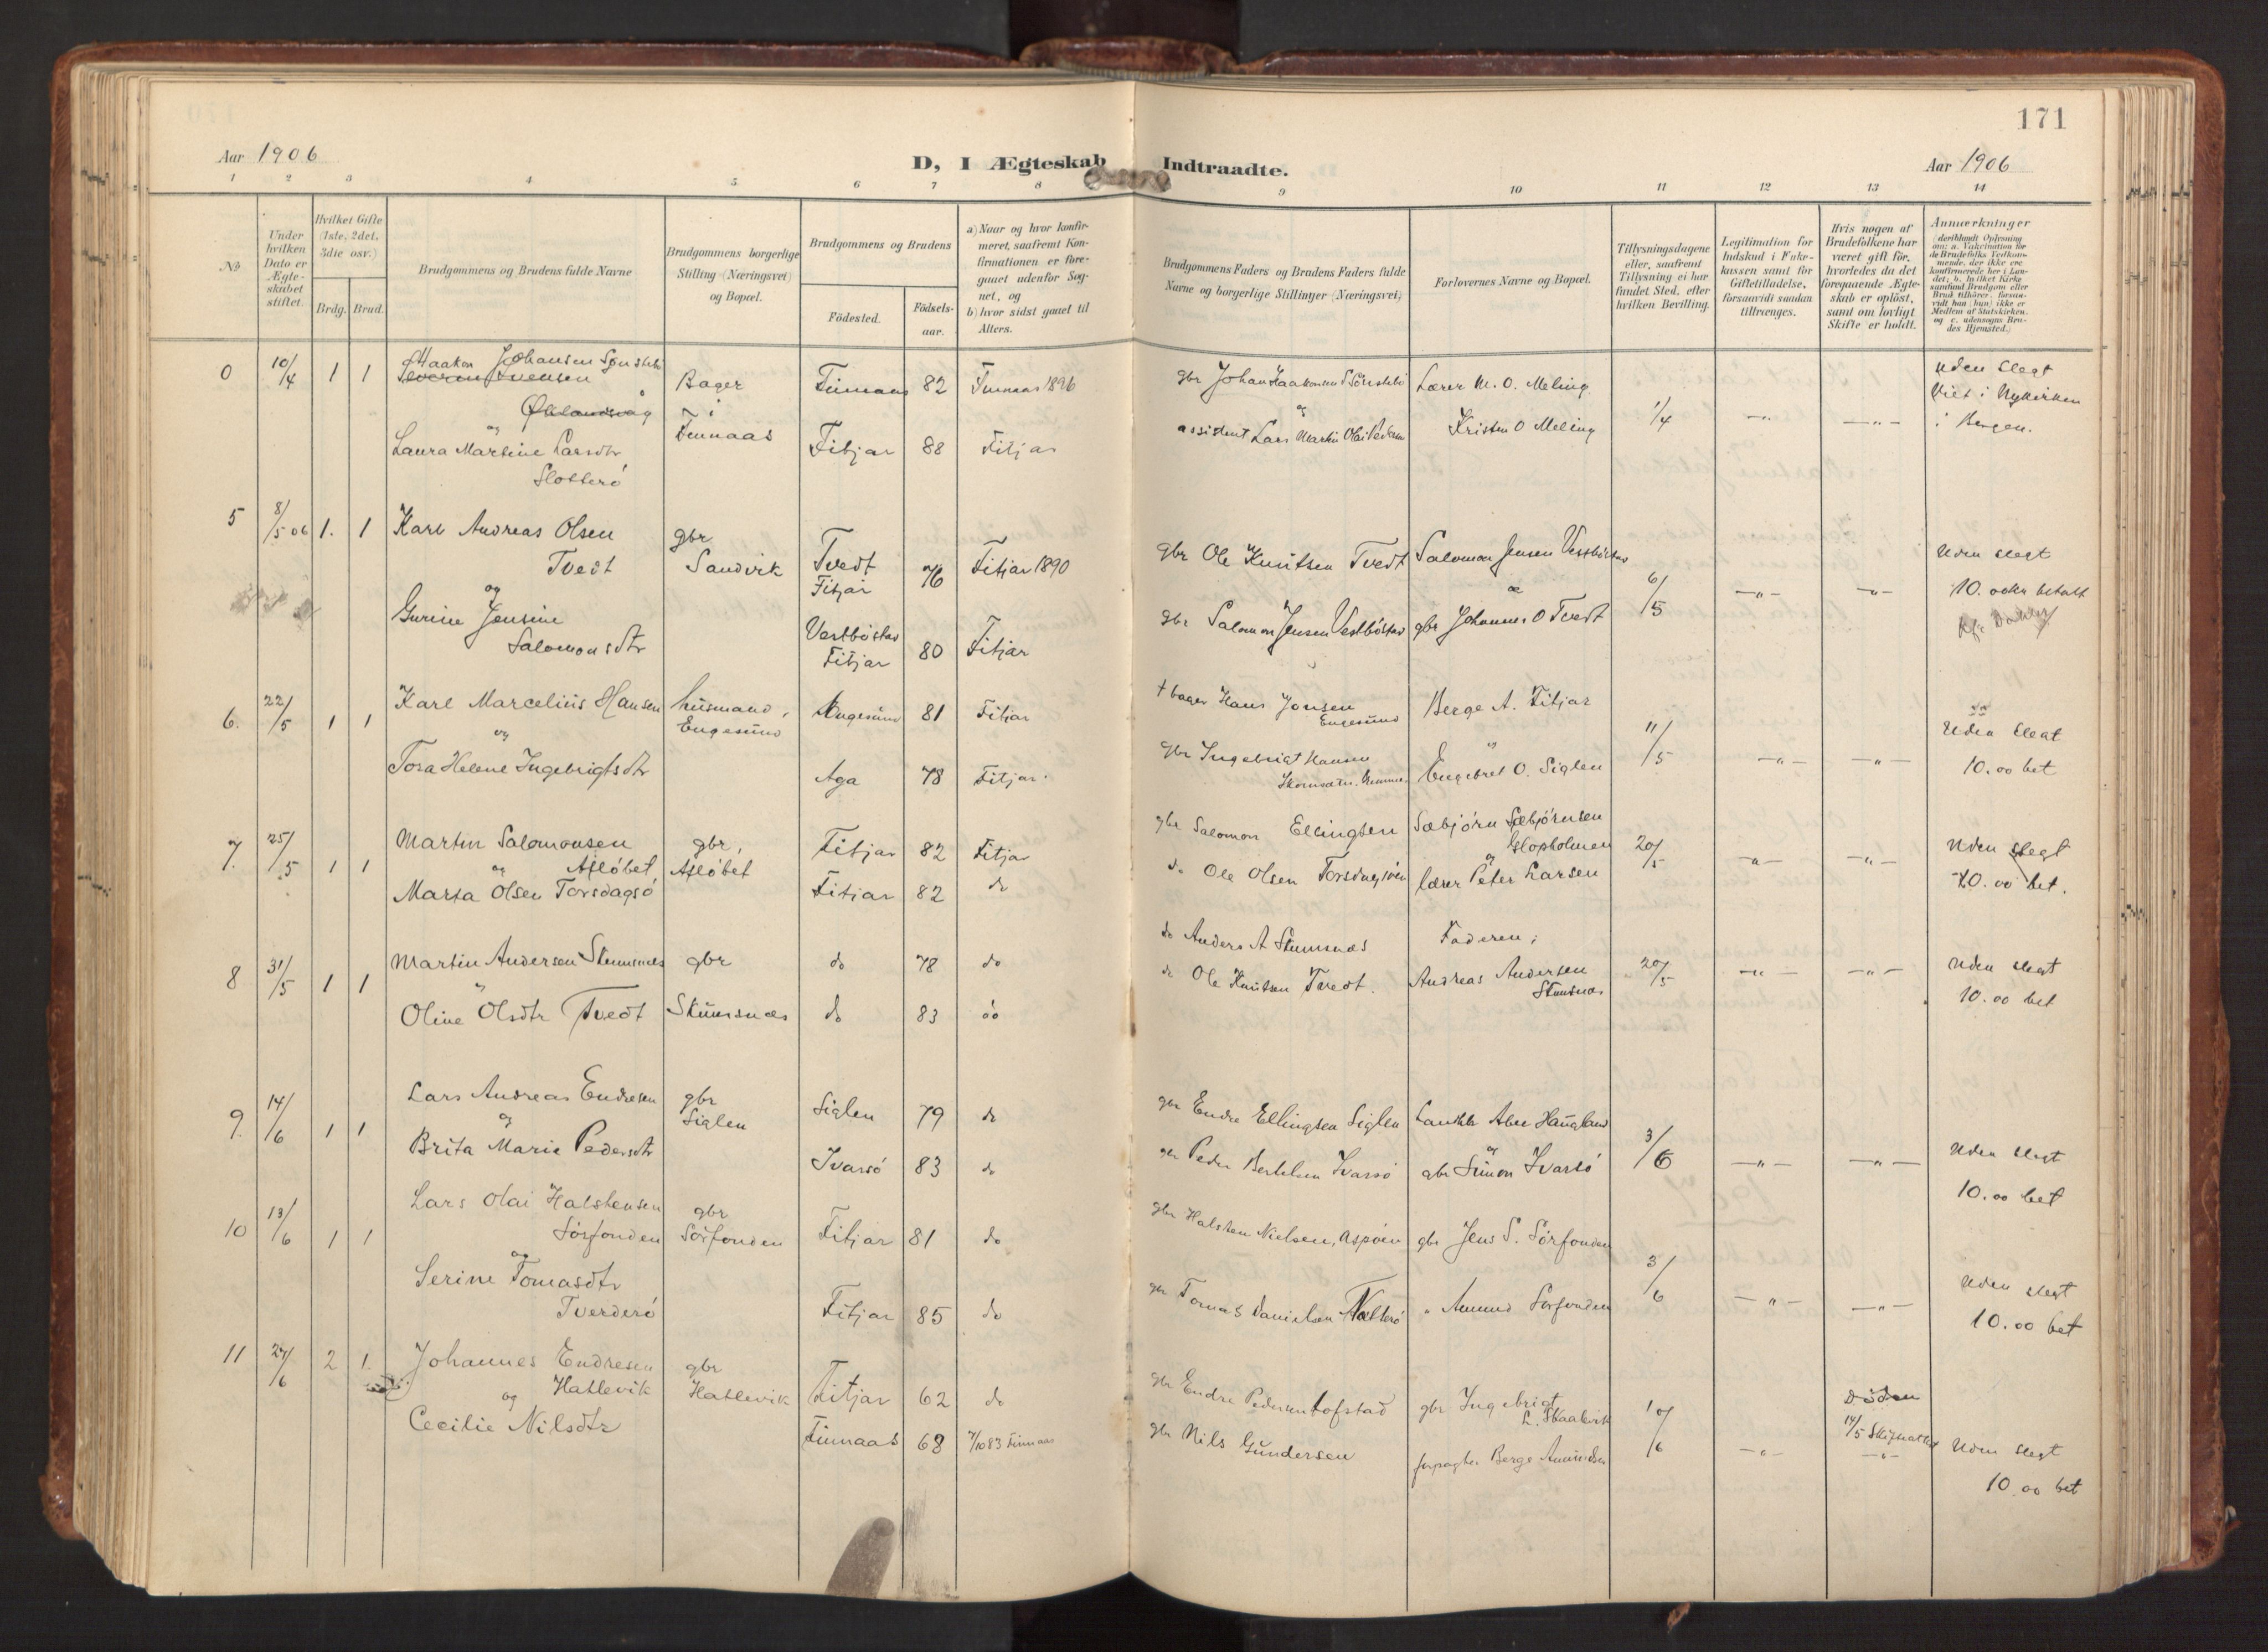 171
Aar 1906
D, I Ægteskab Indtraadte.
Aar 1906
1 2 3 4 5 6 7 8 9 10 11 12 13 14
No
Under hvilken Dato er Ægteskabet stiftet.
Hvilket Gifte (1ste, 2det, 3die osv.)
Brdg. Brud.
Brudgommens og Brudens fulde Navne
Brudgommens borgerlige Stilling (Næringsvei) og Bopæl.
Brudgommens og Brudens
Fødested.
Fødsels-aar.
a) Naar og hvor konfirmeret, saafremt Konfirmationen er foregaaet udenfor Sognet, og
b) hvor sidst gaaet til Alters.
Brudgommens Faders og Brudens Faders fulde Navne og borgerlige Stillinger (Næringsvei)
Forlovernes Navne og Bopæl.
Tillysningsdagene eller, saafremt Tillysning ei har fundet Sted, efter hvilken Bevilling.
Legitimation for Indskud i Enkekassen samt for Giftetilladelse, forsaavidt saadan tiltrænges.
Hvis nogen af Brudefolkene har været gift før, hvorledes da det foregaaende Ægteskab er opløst, samt om lovligt Skifte er holdt.
Anmærkninger
(deriblandt Oplysning om: a. Vakcination for de Brudefolks Vedkommende, der ikke ere konfirmerede her i Landet; b. hvilket Kirkesamfund Brudgom eller Brud tilhører, forsaavidt han (hun) ikke er Medlem af Statskirken, og c. udensogns Brudes Hjemsted.)
0 10/4 1 1 Haakon Johansen Sønstebø Bager Finnaas 82 Finnaas 1896 gbr Johan Haakonsen Sønstebø Lærer M. O. Meling 1/4 -"- -"- Uden slegt
Viet i Nykirken
i Bergen.
og i Finnaas
Laura Martine Larsdtr Fitjar 88 Fitjar assistent Lars Martin Olai Kristen O Meling
Slotterö
5 8/5 06 1. 1 Karl Andreas Olsen gbr Tvedt 76 Fitjar 1890 gbr Ole Knutsen Tvedt Salomon Jensen Vestböstad 6/5 -"- -"- Uden slegt
Tvedt Sandvik Fitjar 10.00 kr betalt
og
Gurine Jensine Vestböstad
Salomonsdtr Fitjar 80 Fitjar gbr Salomon Jensen Vestböstad gbr Johannes O Tvedt
6. 22/5 1 1 Karl Marcelius Hansen husmand, Engesund 81 Fitjar † bager Hans Jonsen Berge A. Fitjar 11/5 -"- -"- Uden slegt
og Engesund Engesund 10.00 bet
Tora Helene Ingebrigtsdtr Aga 78 Fitjar. gbr Ingebrigt Hansen Engebret O. Siglen
7. 25/5 1 1 Martin Salomonsen gbr, Fitjar 82 Fitjar gbr Salomon Ellingsen Sæbjörn Sæbjörnsen 20/5 -"- -"- Uden slegt
og Aflöbet Aflöbet Glopholmen 10.00 bet.
Marta Olsen Torsdagsö Fitjar 82 do do Ole Olsen Torsdagsöen lærer Peter Larsen
8 31/5 1 1 Martin Andersen Skumsnæs gbr do 78 do do Anders A Skumsnæs Faderen; 20/5 -"- -"- Uden slegt
Oline Olsdtr Tvedt Skumsnæs do 83 do do Ole Knutsen Tvedt. Andreas Andersen 10.00 bet
Skumsnæs
9. 14/6 1 1 Lars Andreas Endresen gbr Siglen Siglen 79 do gbr Endre Ellingsen Siglen Haugland 3/6 -"- -"- Uden slegt
og
Brita Marie Pedersdtr Ivarsö 83 do gbr Peder Bertelsen Ivarsö gbr Simon Ivarsö 10.00 bet
10 13/6 1 1 Lars Olai Halstensen gbr Fitjar 81 do gbr Halsten Nielsen, Aspöen gbr Jens S. Sörfonden 3/6 -"- -"- Uden slegt
Sörfonden Sörfonden 10.00 bet
og
Serine Tomasdtr Fitjar 85 do gbr Tomas Danielsen " Amund Sörfonden
Tverderö
11 24/6 2 1. Johannes Endresen gbr Fitjar 62 do gbr Endre Pedersen Tofstad gbr Ingebrigt 10/6 -"- Döden
Hatlevik Hatlevik L. Skaalevik 14/5
og
Cecilie Nilsdtr Finnaas 68 7/10 83 Finnaas gbr Nils Gundersen forpagter Berge Amundsen -"- Uden slegt
10.00 bet